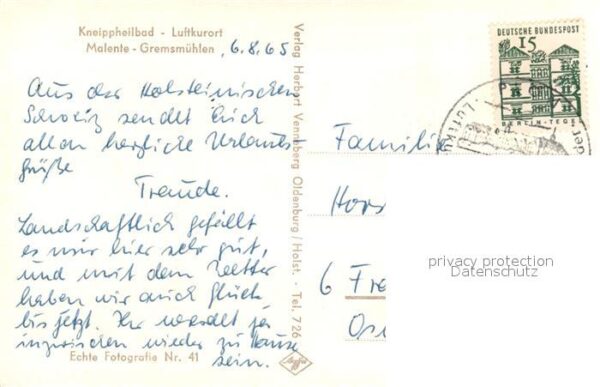 Kneippheilbad - Luftkurort
Malente - Gremsmühlen
6.8.65
Aus der Holsteinischen
Schweiz sendet Euch
allen herzliche Urlaubs-
grüße
Traude.
Landschaftlich gefällt
es mir hier sehr gut,
und mit dem Wetter
haben wir auch Glück
bis jetzt. Ihr werdet ja
inzwischen wieder zu Hause
sein.
Echte Fotografie Nr. 41
Verlag Herbert Venneberg Oldenburg/Holst. - Tel. 726
DEUTSCHE BUNDESPOST
15
BERLIN-TEGEL
Familie
Hors
6 Fra
privacy protection
Datenschutz